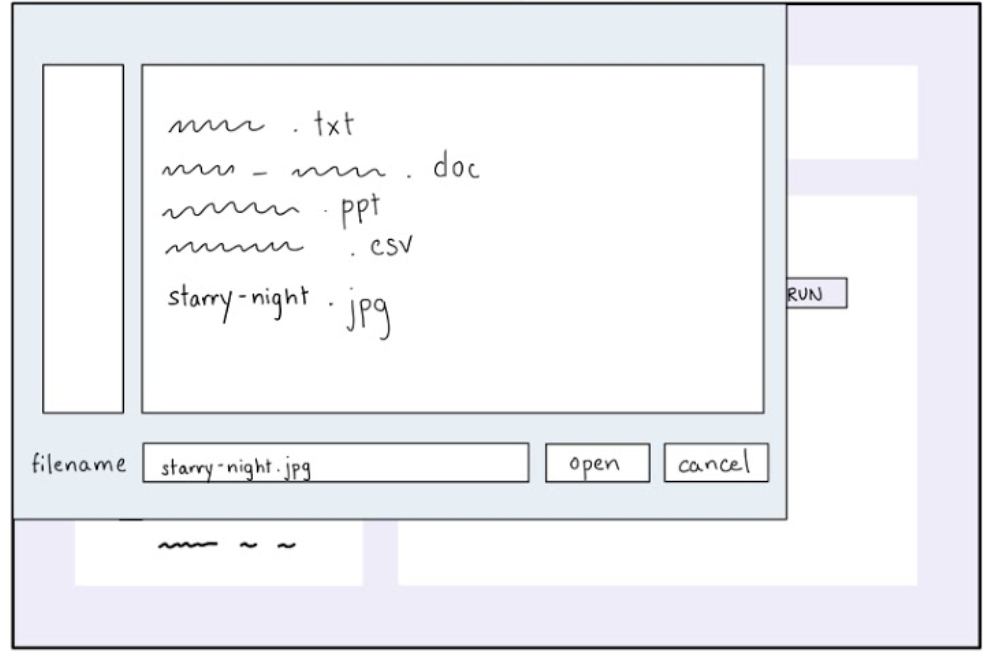 .txt
- .doc
.ppt
.csv
starry-night.jpg
RUN
filename starry-night.jpg open cancel